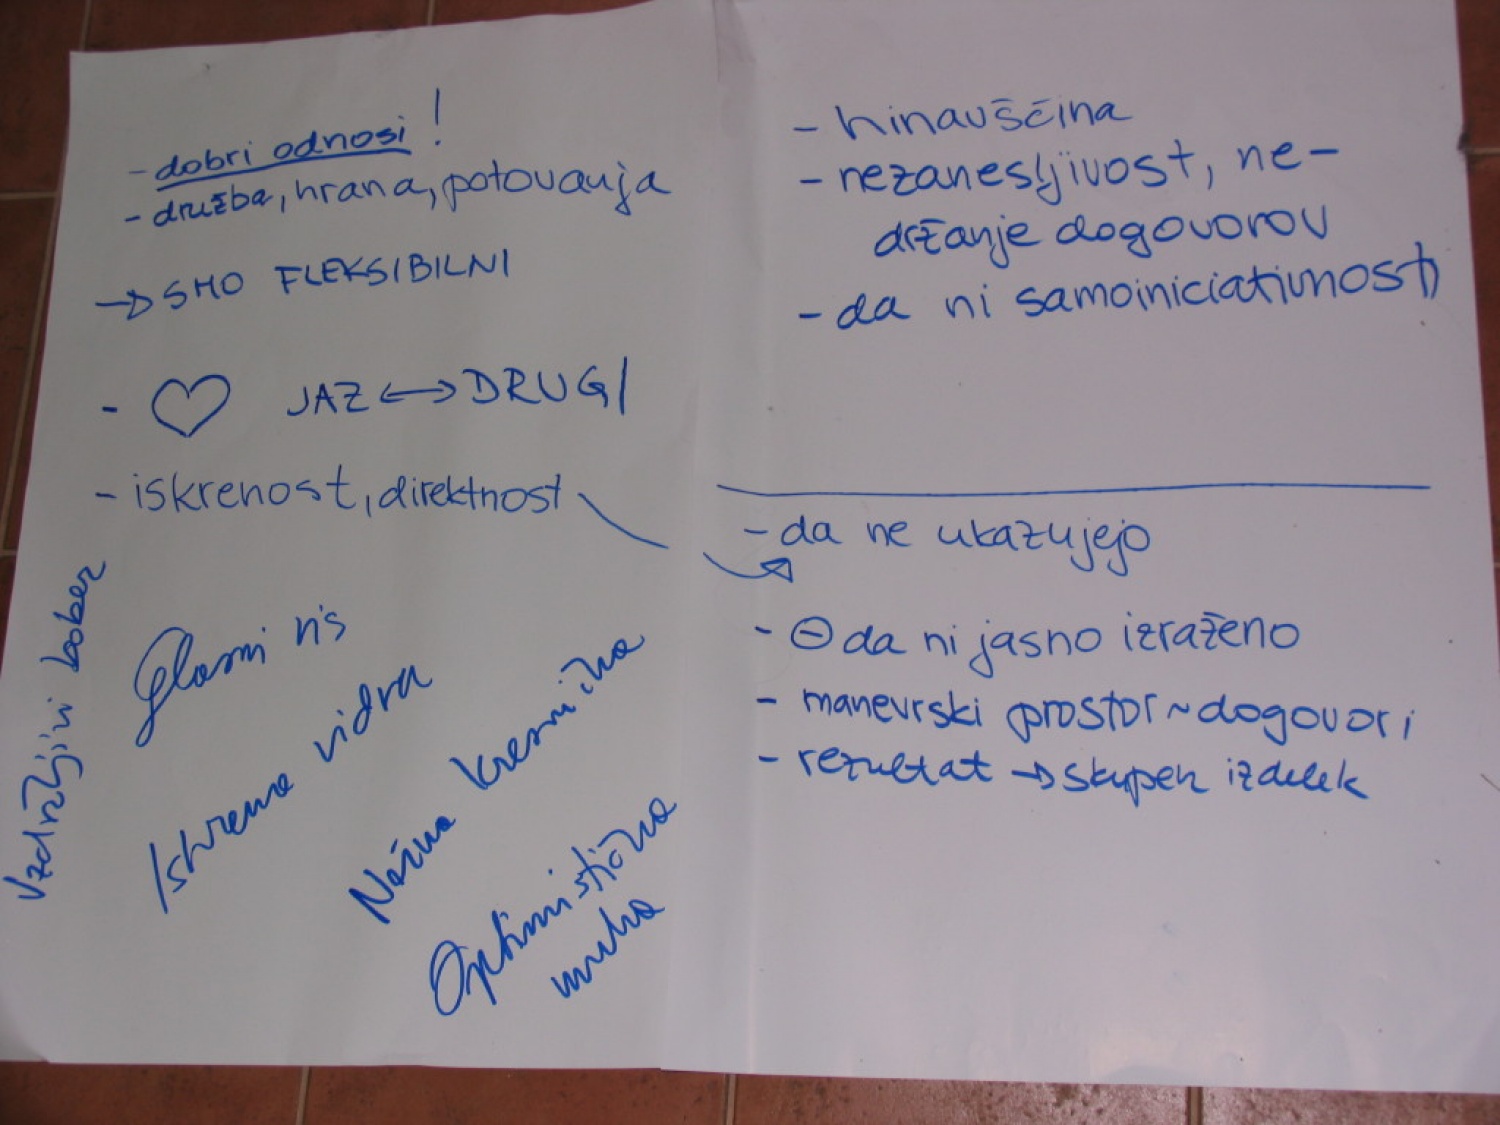 - dobri odnosi!
- družba, hrana, potovanja
→ SMO FLEKSIBILNI
- ♡ JAZ ↔ DRUGI
- iskrenost, direktnost
Vzdržljivi bober
Glasni ris
Iskrena vidra
Nežna kresnička
Optimistična
muha
- hinavščina
- nezanesljivost, ne-
držanje dogovorov
- da ni samoiniciativnosti
- da ne ukazujejo
- ⊖ da ni jasno izraženo
- manevrski prostor ~ dogovori
- rezultat → skupen izdelek